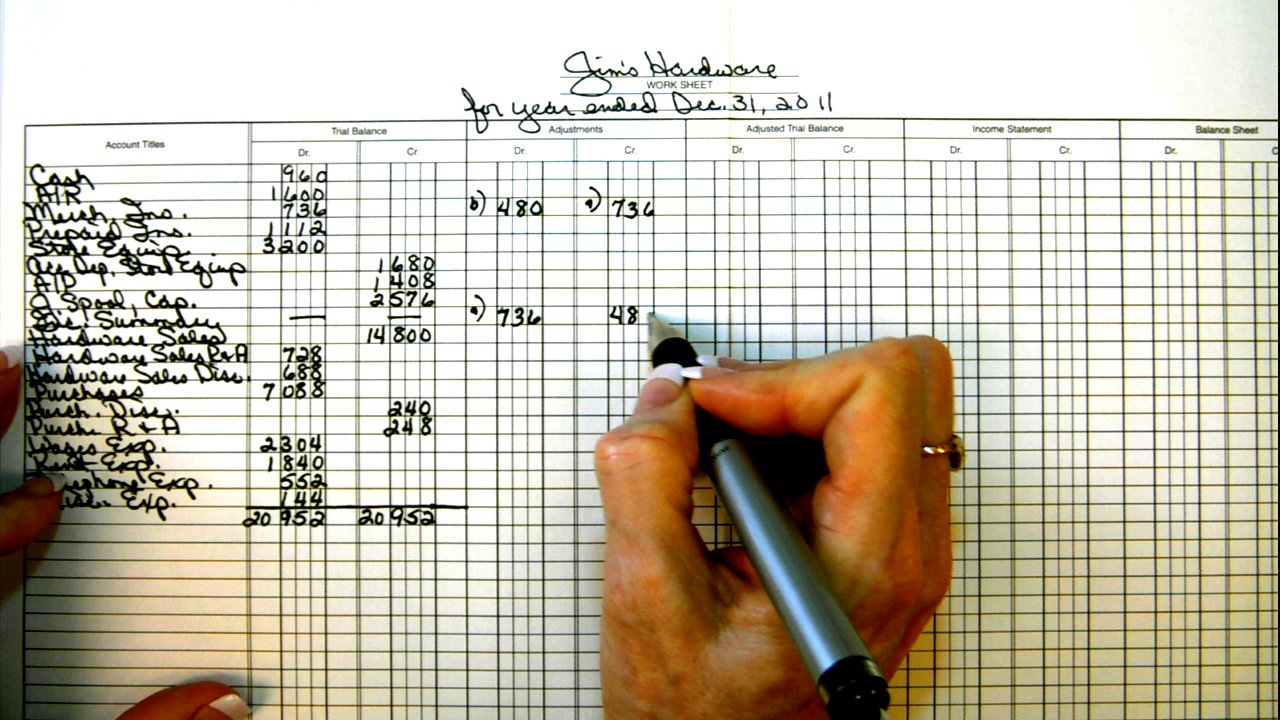 Jim's Hardware
WORK SHEET
for year ended Dec. 31, 2011
Account Titles Trial Balance Adjustments Adjusted Trial Balance Income Statement Balance Sheet
Dr. Cr. Dr. Cr. Dr. Cr. Dr. Cr. Dr. C
Cash 960
A/R 1600
Merch. Inv. 736 b) 480 a) 736
Prepaid Ins. 1112
Store Equip. 3200
Acc. Dep. Store Equip 1680
A/P 1408
J. Spool, Cap. 2576
Inc. Summary — — a) 736 48
Hardware Sales 14800
Hardware Sales R&A 728
Hardware Sales Disc. 688
Purchases 7088
Purch. Disc. 240
Purch. R & A 248
Wages Exp. 2304
Rent Exp. 1840
Exp. 552
Exp. 144
20952 20952